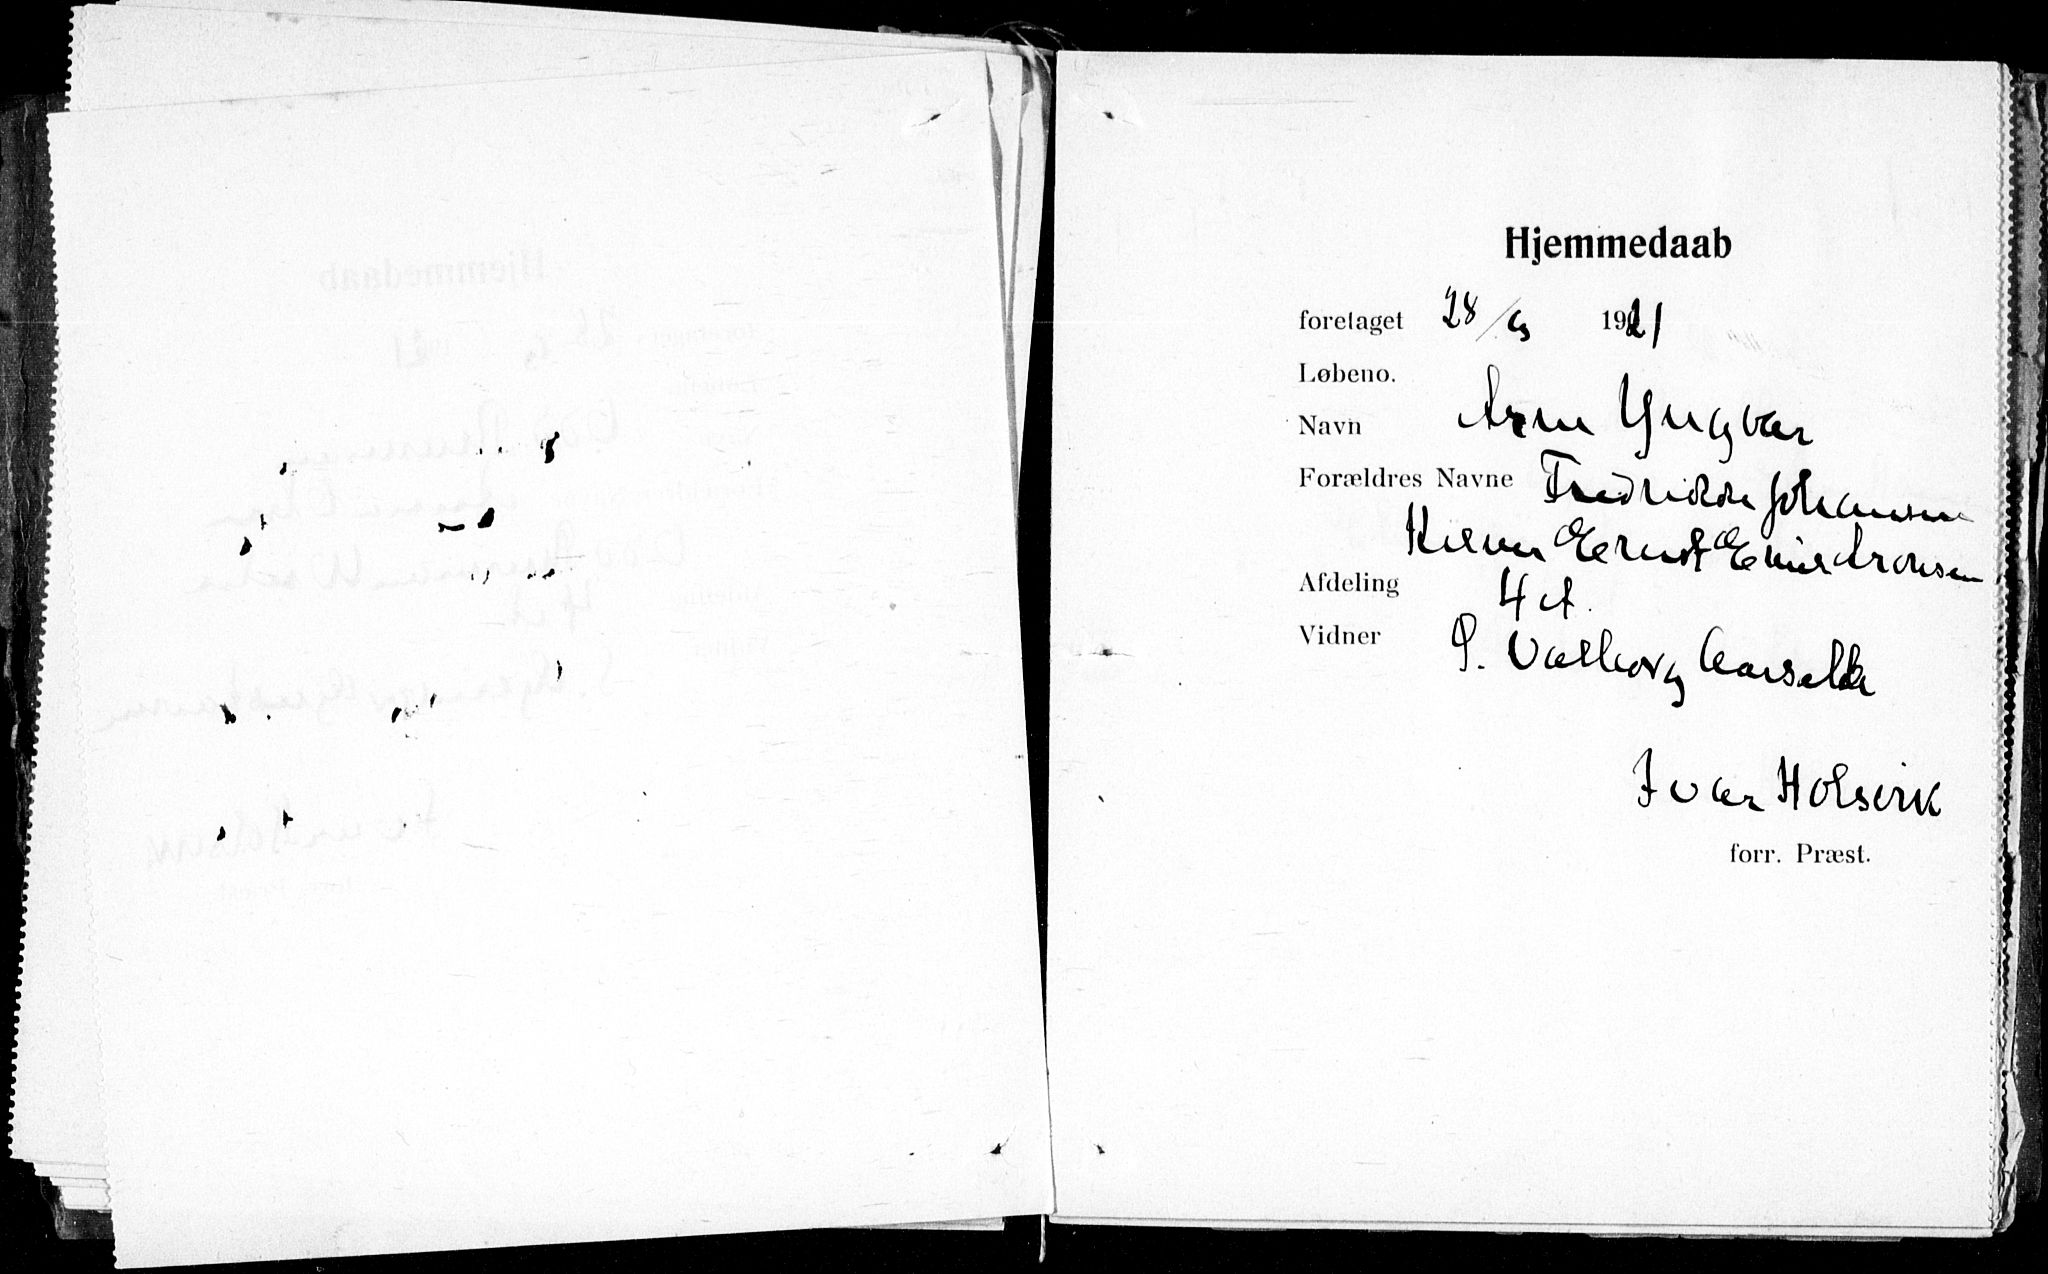 Hjemmedaab
foretaget 28/9 1921
Løbeno.
Navn Arne Yngvar
Forældres Navne Fredrikke Johansen
Ernst Einar Aronsen
Afdeling 4 A.
Vidner S. Valborg
Ivar Holsvik
forr. Præst.